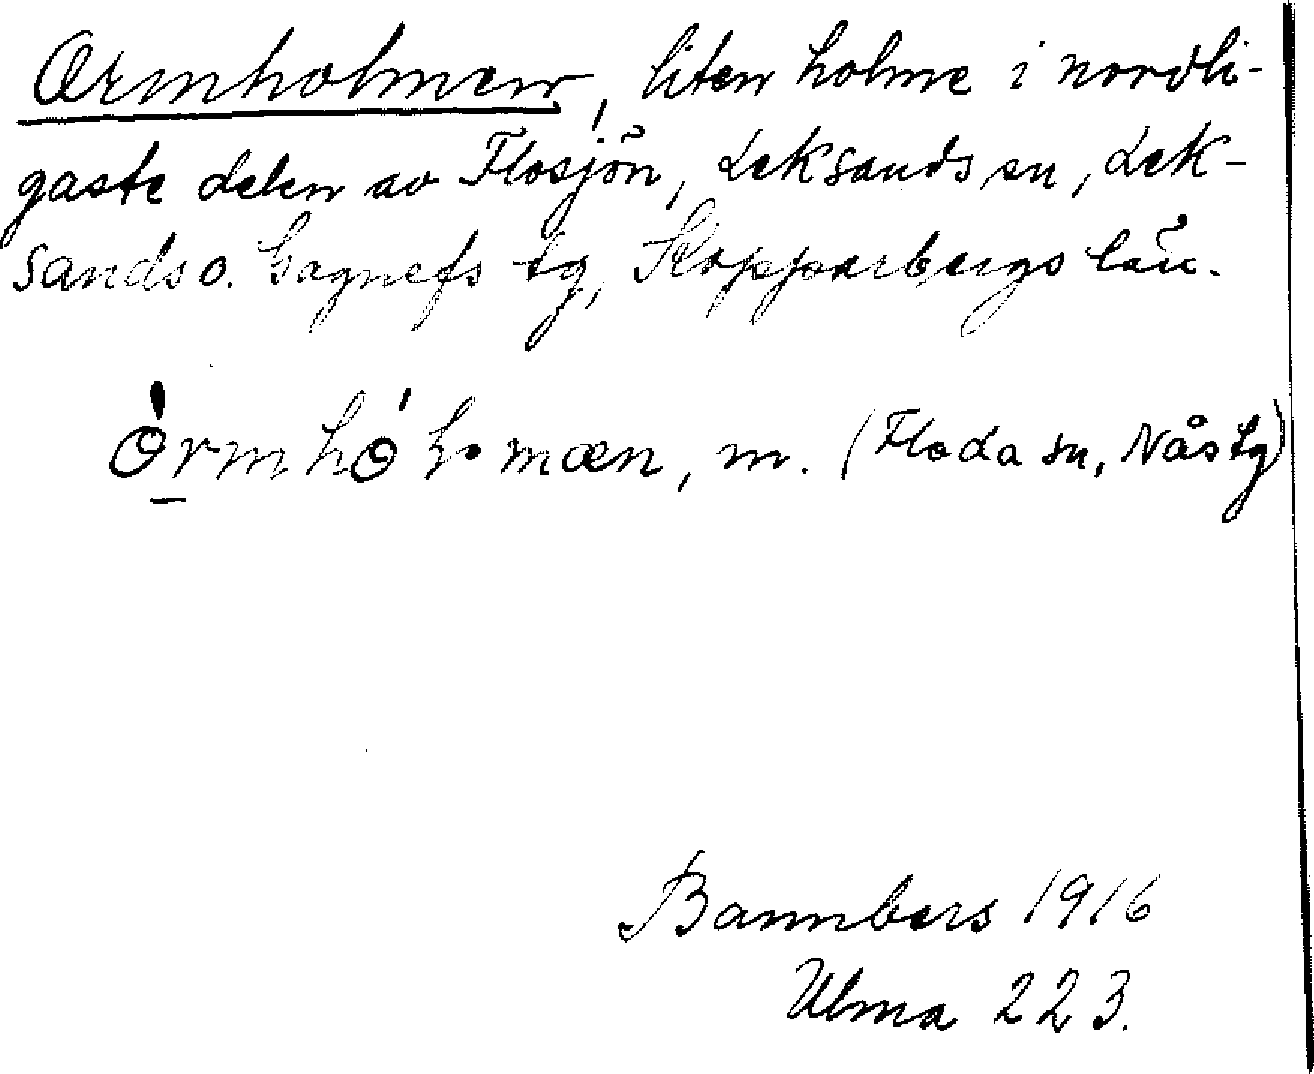 Ormholmen, liten holme i nordli-
gaste delen av Flosjön, Leksands sn, Lek-
sands o. Gagnefs tg, Kopparbergs län.
òrmhó mæn, m. (Floda sn, Nås tg)
Bannbers 1916
Ulma 223.